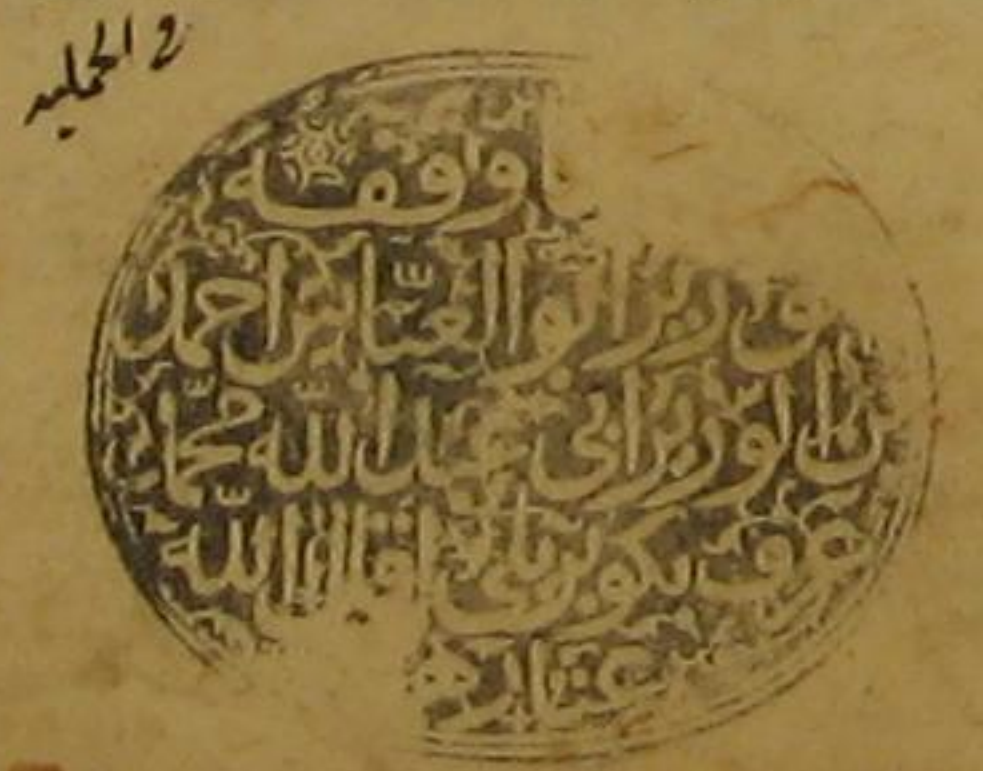 وقفه
الوزير ابو العبّاس احمد
بن الوزير ابي عبد اللّه محمّد
عرف بكوبريلي اقال اللّه
عثارهـ